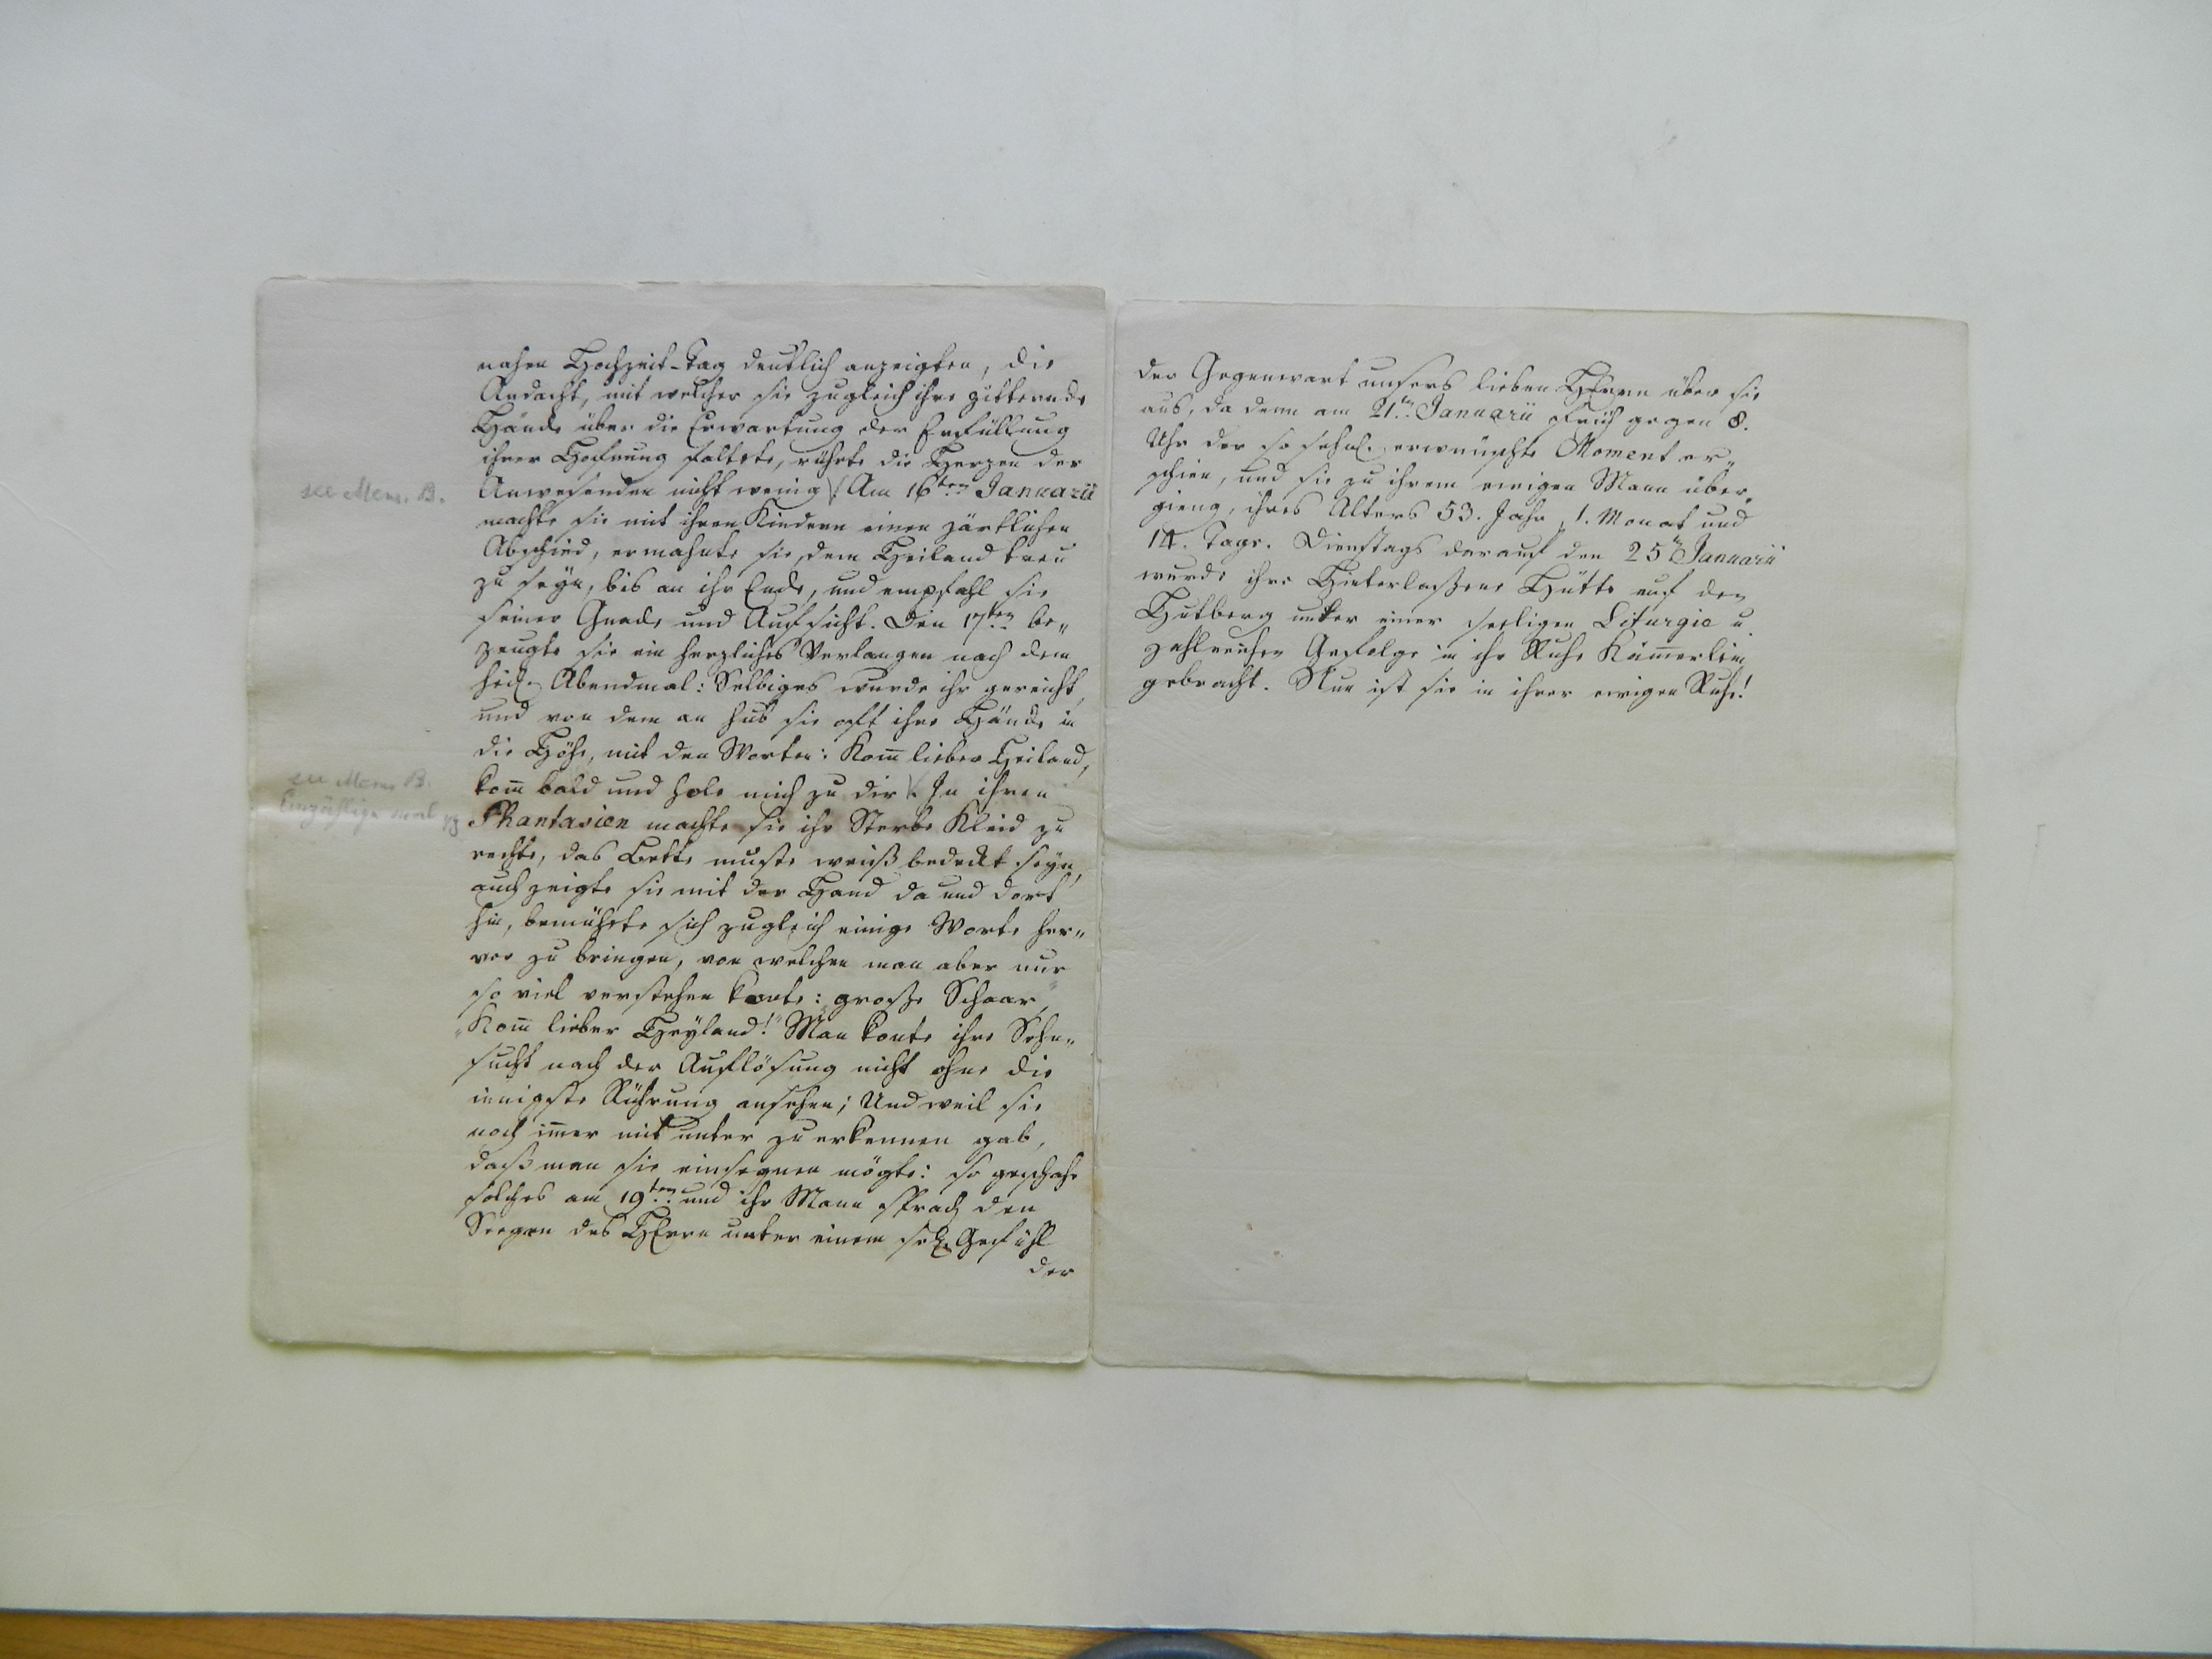 nahen Hochzeit-Tag deutlich anzeigten, die
Andacht, mit welcher sie zugleich ihre zitternde
Hände über die Erwartung der Erfüllung
ihrer Hofnung faltete, rührte die Herzen der
see Mem. B.
Anwesenden nicht wenig \! Am 16ten Januarii
machte sie mit ihren Kindern einen zärtlichen
Abschied, ermahnte sie, dem Heiland treu
zu seyn, bis an ihr Ende, und empfahl sie
seiner Gnade und Aufsicht. Den 17ten be„
zeugte sie ein herzliches Verlangen nach dem
heil. Abendmal: Selbiges wurde ihr gereicht,
und von dem an hub sie oft ihre Hände in
die Höhe, mit den Worten: Kom̅ lieber Heiland,
see Mem. B.
kom̅ bald und hole mich zu dir \. In ihren
Phantasien machte sie ihr Sterbe Kleid zu
rechte, das Bette muste weiß bedeckt seyn,
auch zeigte sie mit der Hand da und dort
hin, bemühete sich zugleich einige Worte her„
vor zu bringen, von welchen man aber nur
so viel verstehen konte: große Schaar,
„Kom̅ lieber Heyland!" Man konte ihre Sehn„
sucht nach der Auflösung nicht ohne die
innigste Rührung ansehen; Und weil sie
noch im̅er mit unter zu erkennen gab,
daß man sie einsegnen mögte: so geschahe
solches am 19ten und ihr Mann sprach den
Seegen des HErrn unter einem sel. Gefühl
der
der Gegenwart unsers lieben HErrn über sie
aus, da denn am 21ten Januarii früh gegen 8.
Uhr der so sehnl. erwünschte Moment er„
schien, und sie zu ihrem ewigen Mann über„
gieng, ihres Alters 53. Jahr, 1. Monat und
14. Tage. Dienstags darauf den 25ten Januarii
wurde ihre Hinterlaßene Hütte auf den
Hutberg unter einer seeligen Liturgie u.
zahlreichen Gefolge in ihr Ruhe Käm̅erlein
gebracht. Nun ist sie in ihrer ewigen Ruhe!